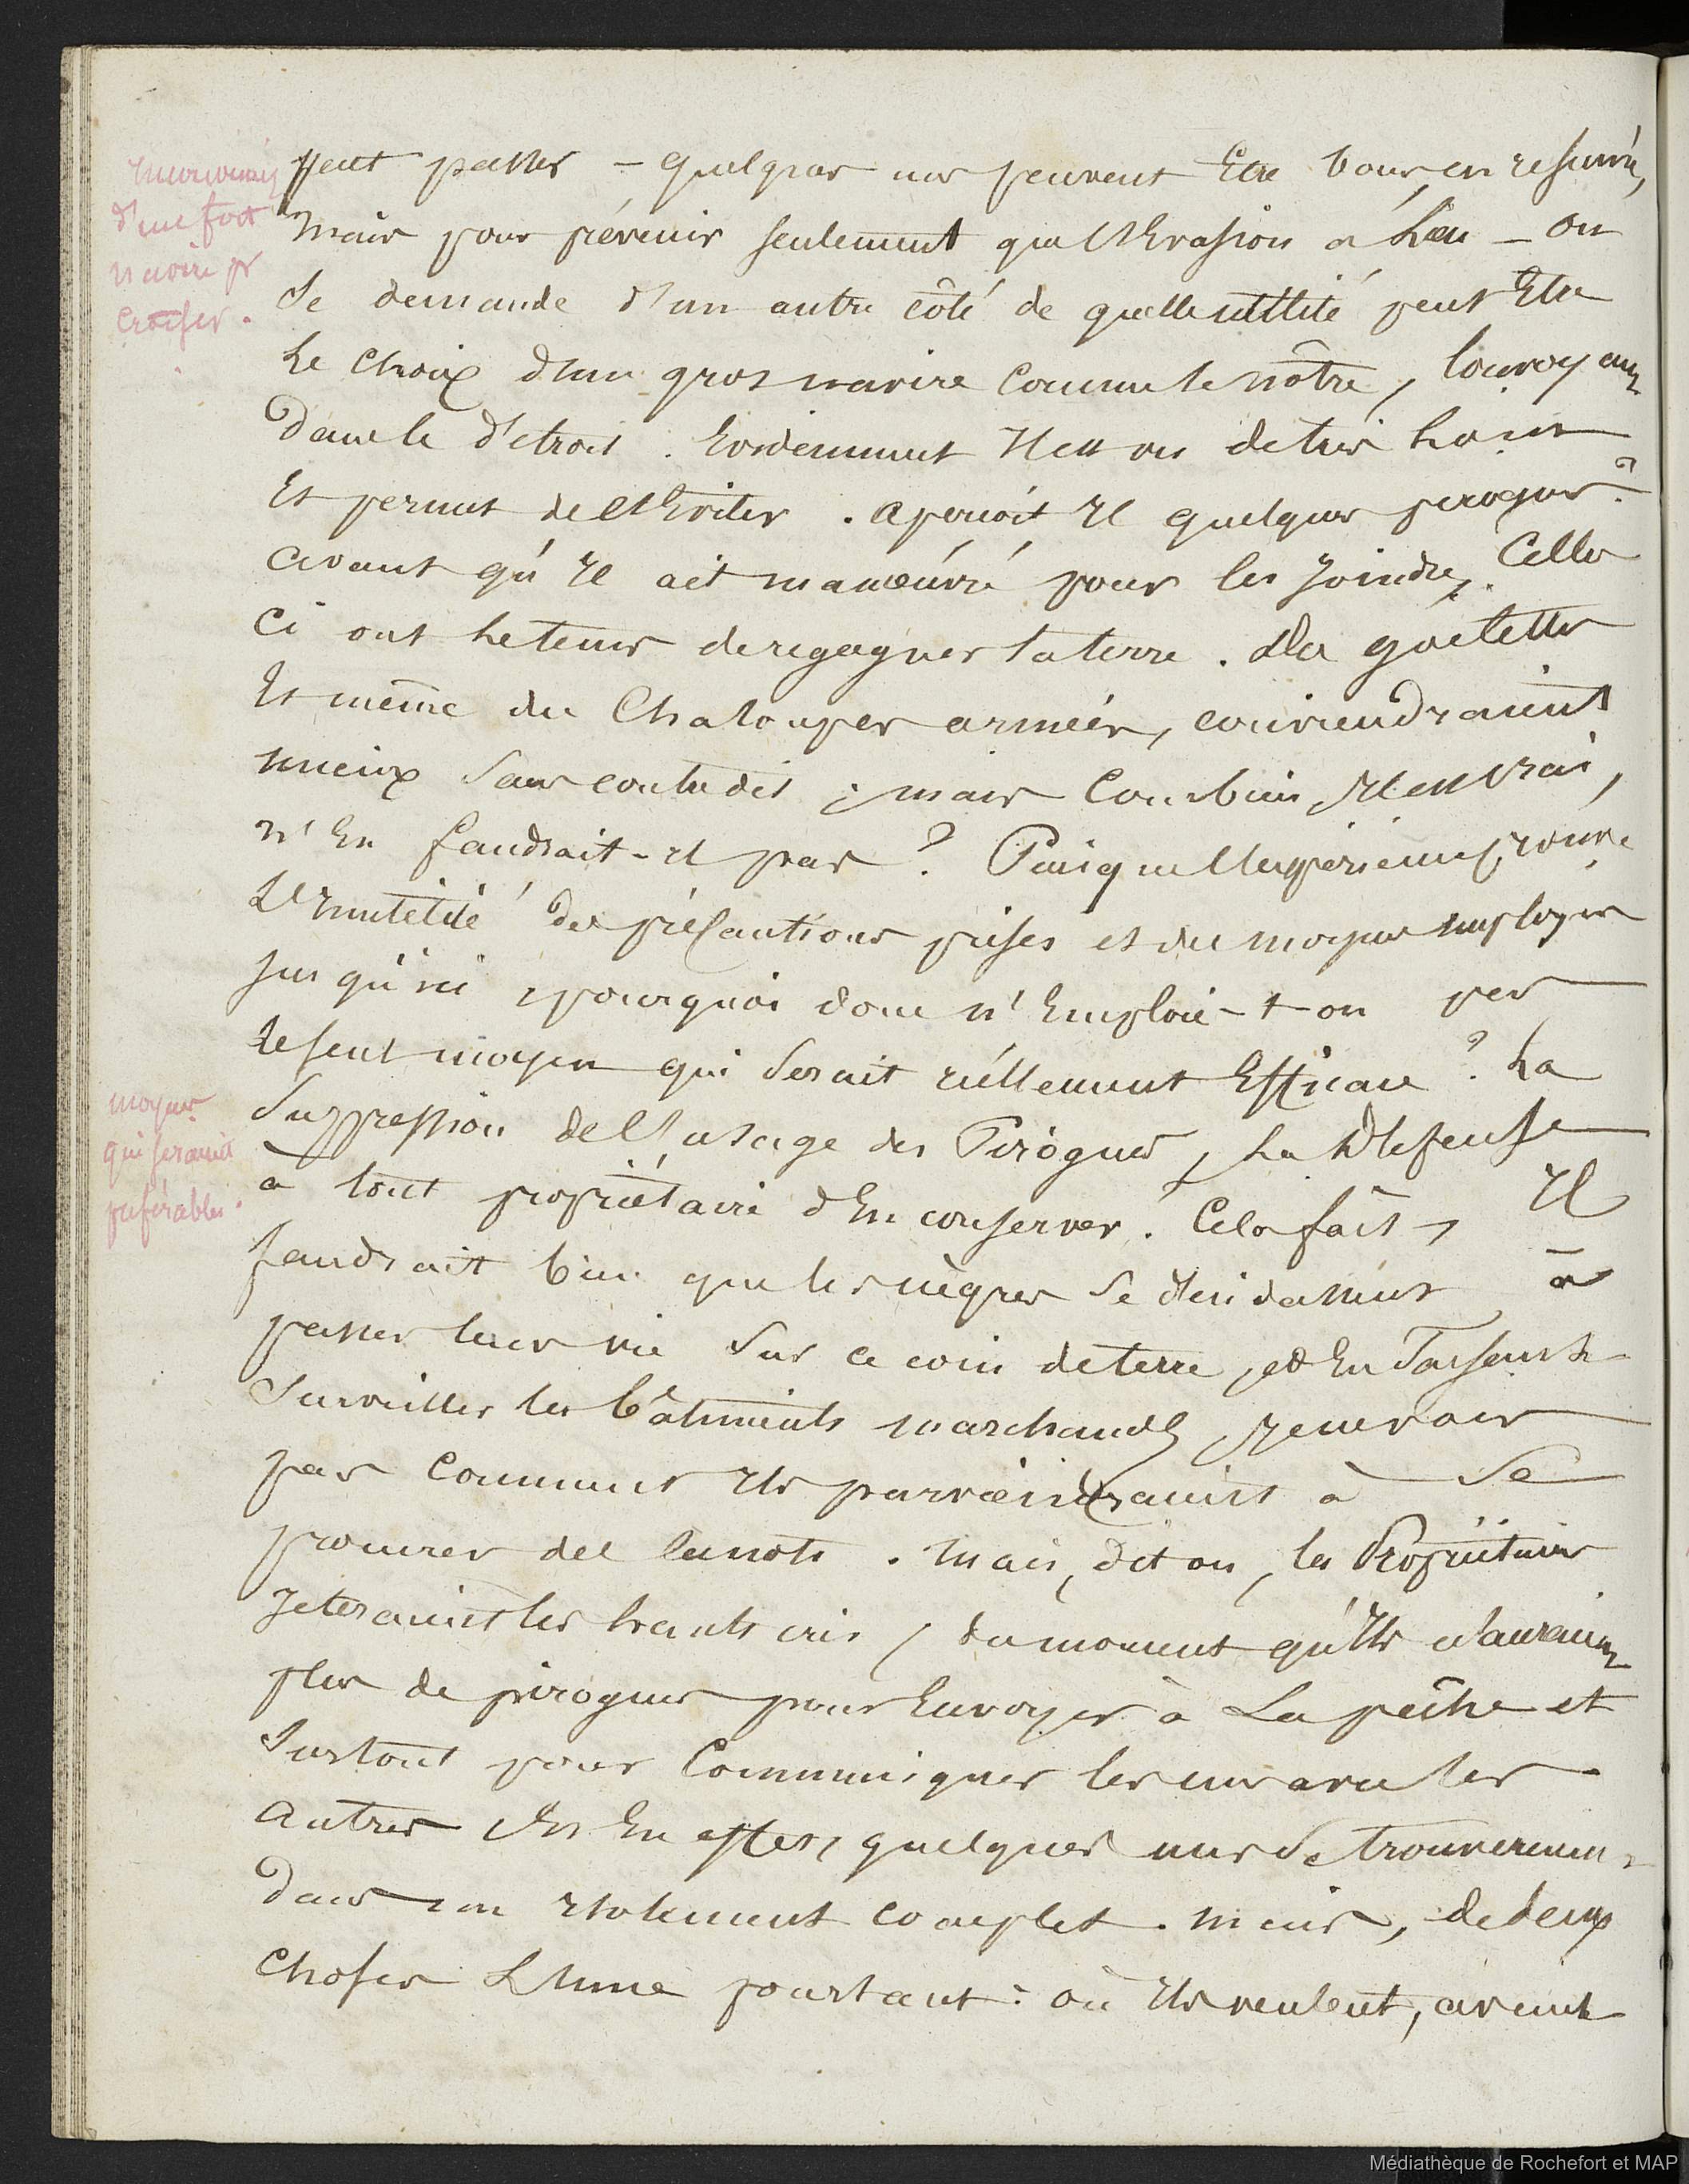 Inconvénients
d'un fort
navire pr
croiser.
peut passer – quelques uns peuvent Etre bons, en résumé,
mais pour prévenir seulement que l'Evasion a Lieu – on
se demande d'un autre côté de quelle utilité peut Etre
Le Choix d'un gros navire Comme le nôtre, louvoyant
dans le détroit. Evidemment Il est vu de très Loin
Et permet de l'Eviter. aperçoit Il quelques pirogues ?
avant qu'Il ait manœuvré pour les Joindre, Celles
Ci ont le tems de regagner la terre. Des goëlettes
Et même des Chaloupes armées, conviendraient
mieux sans contredit ; mais Combien, Il est vrai,
n'En faudrait-il pas ? Puisque l'expérience prouve
L'Inutilité des précautions prises et des moyens employés
jusqu'ici, pourquoi donc n'Emploie-t-on pas
le seul moyen qui serait réellement Efficace ? La
moyens
qui seraient
préférables.
Suppression de l'usage des Pirogues, La Défense
à tout propriétaire d'En conserver. Cela fait, Il
faudrait bien que les nègres se décidassent à
passer leur vie Sur ce coin de terre, et En faisant
surveiller les bâtiments marchands, Je ne vois
pas Comment Ils parviendraient à Se
procurer des canots. Mais, dit on, les Propriétaires
Jeteraient les hauts cris, du moment qu'Ils n'auraient
plus de pirogues pour Envoyer à La pêche et
Surtout pour Communiquer les uns avec les
autres Et En effet, quelques uns se trouveraient
dans un Isolement complet. mais, de deux
Choses L'une pourtant : ou Ils veulent, avant